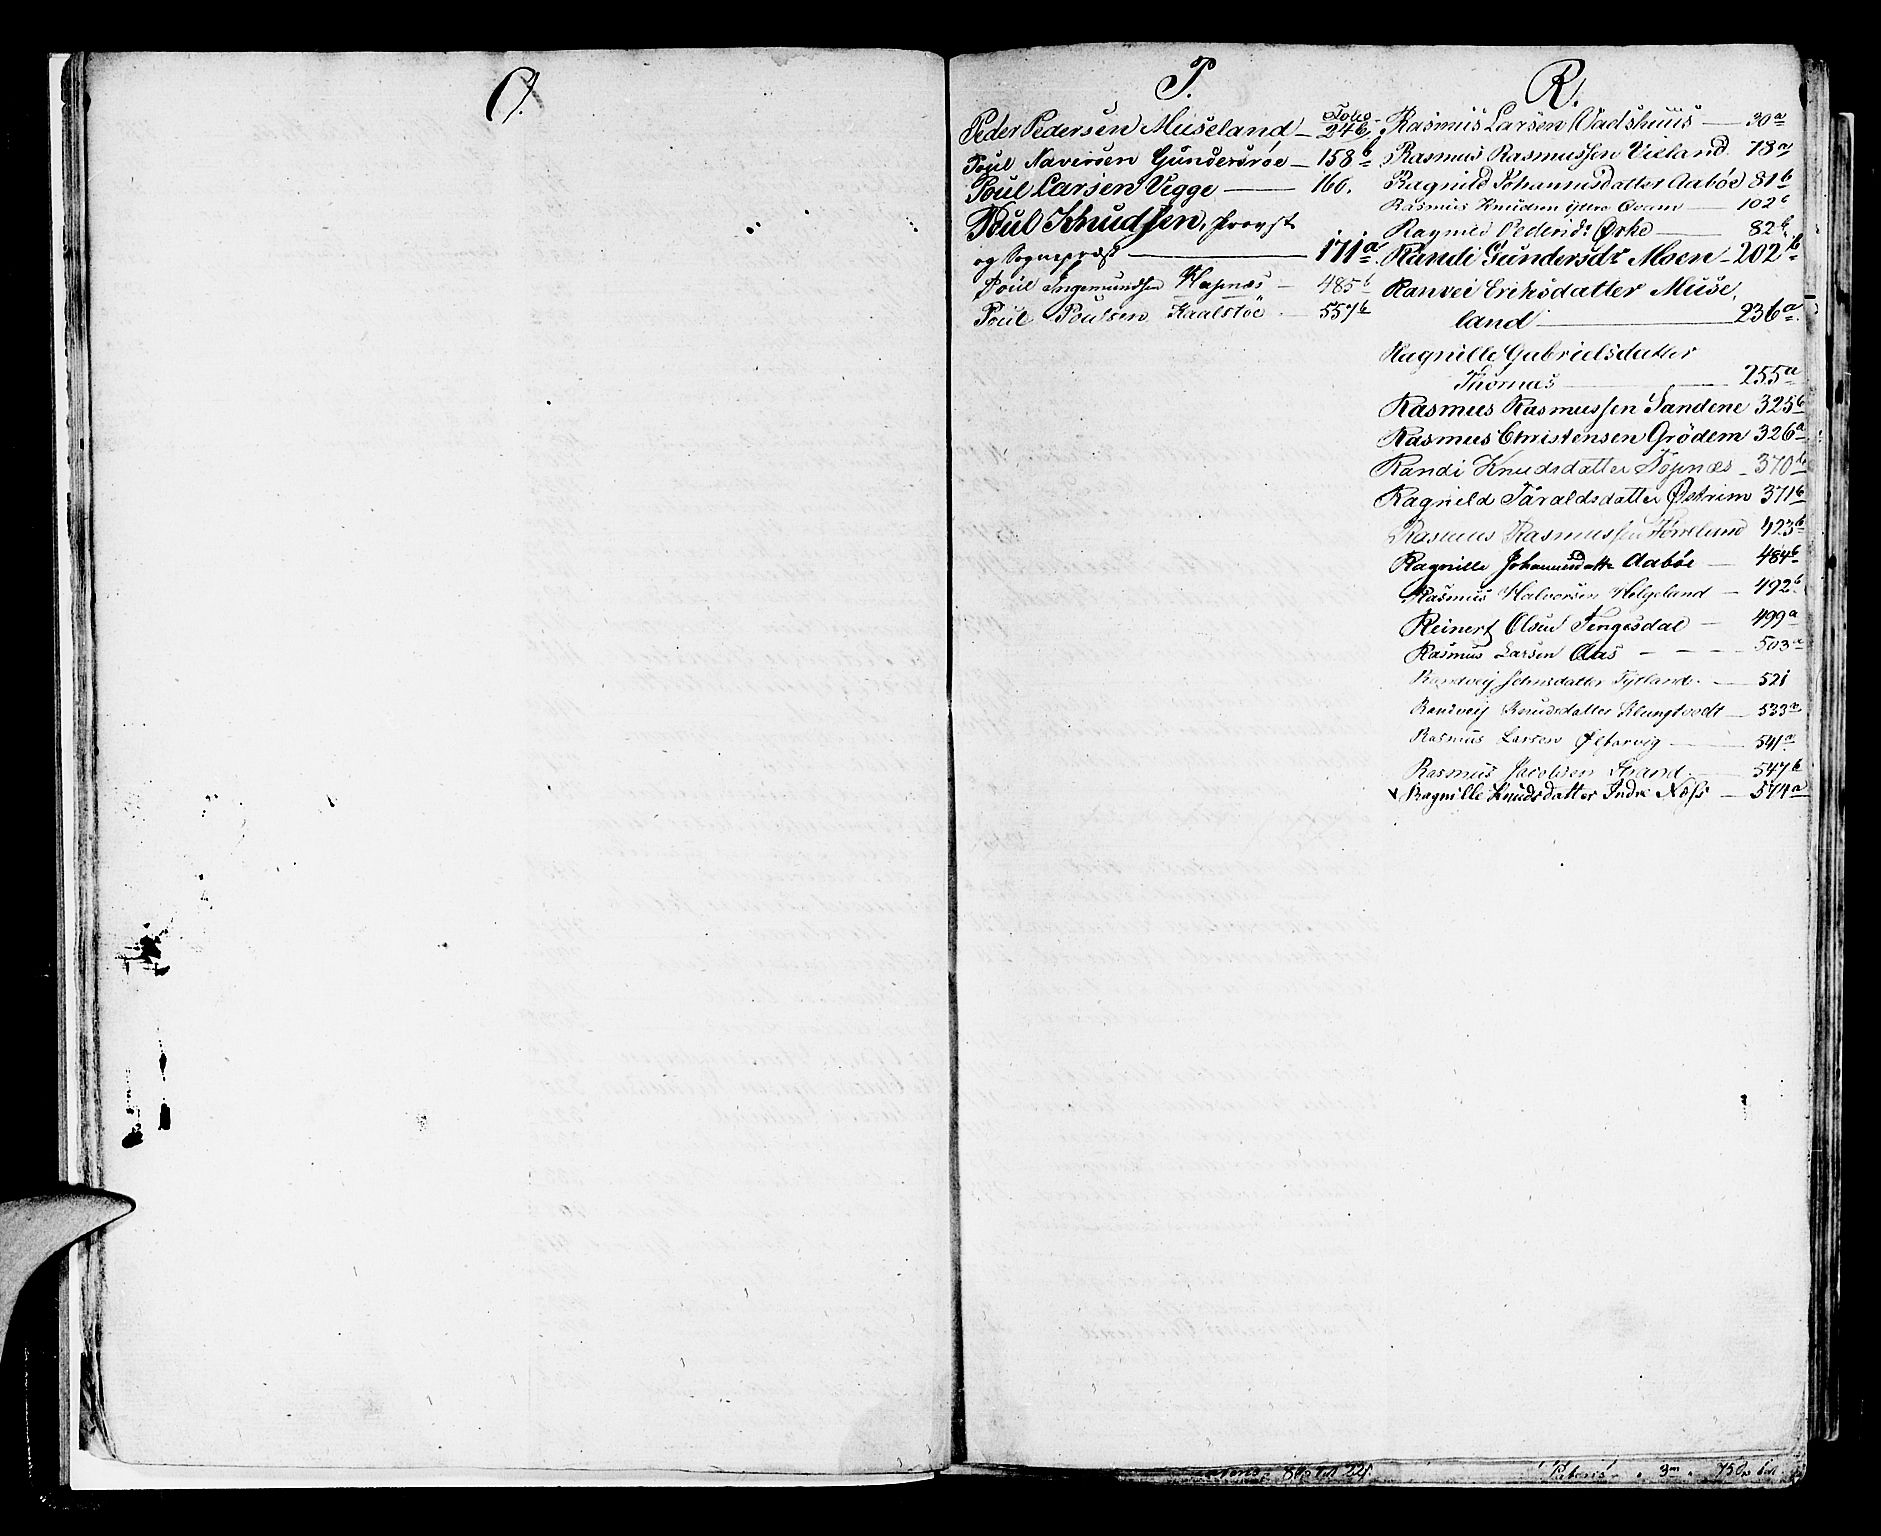 O.
P.
Folio.
Peder Pedersen Museland — 246.
Poul Naversen Gundersröe — 158b
Poul Larsen Vegge — 160.
Poul Knudssen, Provst
og Sognepræst — 171a
Poul Ingemundsen Hapnæs — 485b
Poul Poulsen Kaalstöe — 557b
R.
Rasmus Larsen Vadshuus — 30a
Rasmus Rasmussen Velland 78a
Ragnild Johannisdatter Aabøe 81b
Rasmus Knudsen Yttre Qvam — 102b
Pedersd: Ørke — 82b
Randi Gundersdr Moen — 202b
Ranvei Eriksdatter Muse,
land — 236a
Ragnille Gabrielsdatter
Thomas — 255a
Rasmus Rasmussen Sandene 325b
Rasmus Christensen Grödem 326a
Randi Knudsdatter Hopnæs — 370b
Ragnild Taraldsdatter Østrim 371b
Rasmus Rasmussen 423b
Ragnille Johannisdatt. Aabøe — 484b
Rasmus Halvorsen Helgeland — 492b
Reinert Olsen Tengesdal — 499a
Rasmus Larsen Aas — 503a
Randveij Johnsdatter — 521
Randveij Knudsdatter Klungtvedt — 533a
Rasmus Larsen Ølfarvig — 541a
Rasmus Jacobsen Strand — 547b
Ragnille Knudsdatter Indre Næss — 574a